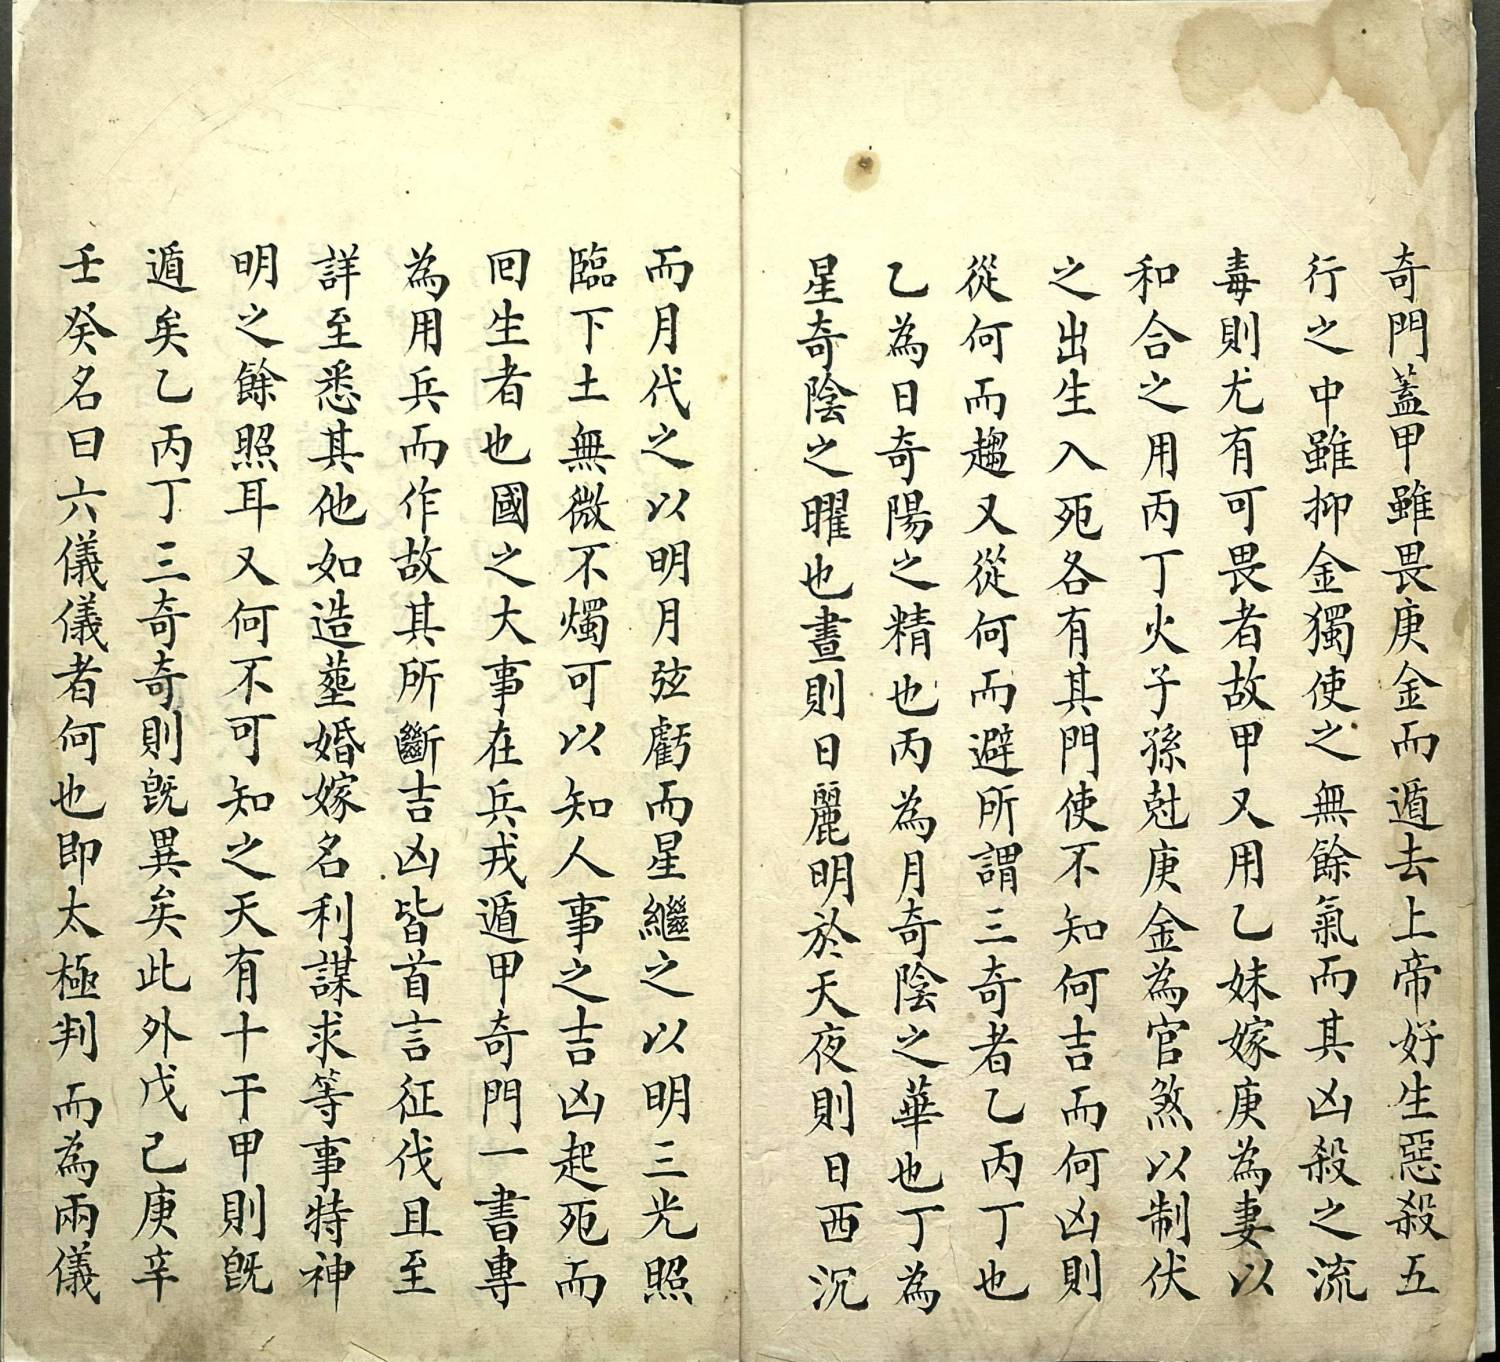 奇門蓋甲雖畏庚金而遁去上帝好生惡殺五
行之中雖抑金獨使之無餘氣而其凶殺之流
毒則尤有可畏者故甲又用乙妹嫁庚為妻以
和合之用丙丁火子孫尅庚金為官煞以制伏
之出生入死各有其門使不知何吉而何凶則
從何而趨又從何而避所謂三奇者乙丙丁也
乙為日奇陽之精也丙為月奇陰之華也丁為
星奇陰之曜也晝則日麗明於天夜則日西沉
而月代之以明月弦虧而星繼之以明三光照
臨下土無微不燭可以知人事之吉凶起死而
回生者也國之大事在兵戎遁甲奇門一書專
為用兵而作故其所斷吉凶皆首言征伐且至
詳至悉其他如造塟婚嫁名利謀求等事特神
明之餘照耳又何不可知之天有十干甲則旣
遁矣乙丙丁三奇奇則旣異矣此外戊己庚辛
壬癸名曰六儀儀者何也即太極判而為兩儀